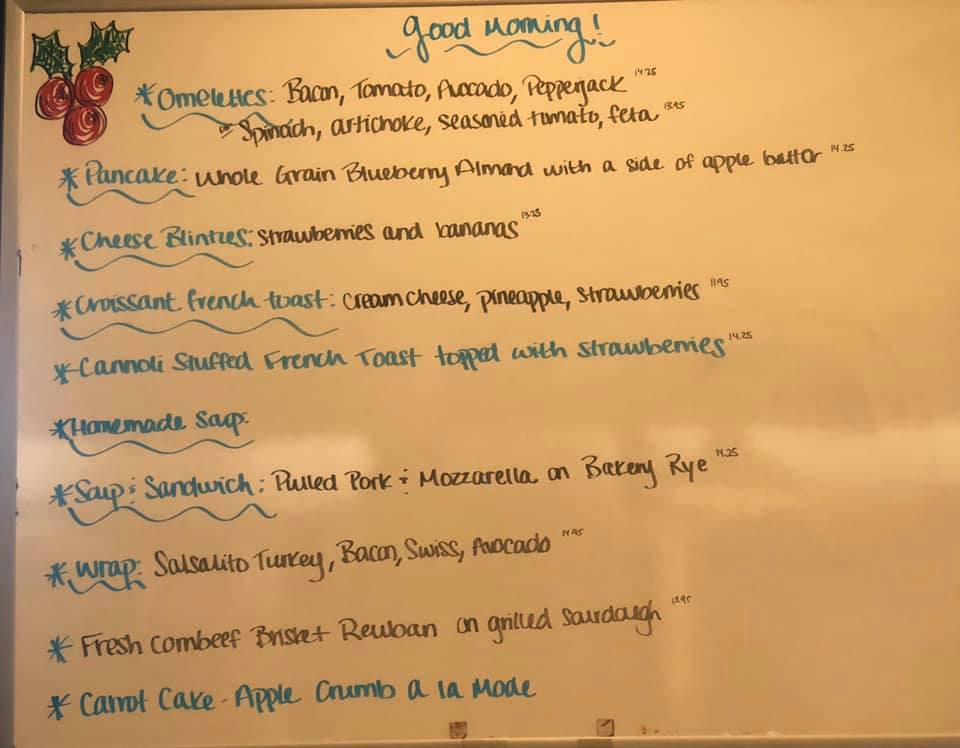 Good Morning!
*Omelettes: Bacon, Tomato, Avocado, Pepperjack 14.25
or Spinach, artichoke, seasoned tomato, feta 13.95
*Pancake: Whole Grain Blueberry Almond with a side of apple butter 14.25
*Cheese Blintzes: strawberries and bananas 13.25
*Croissant french toast: cream cheese, pineapple, strawberries 11.95
*Cannoli Stuffed French Toast topped with strawberries 14.25
*Homemade Soup:
*Soup & Sandwich: Pulled Pork & Mozzarella on Bakery Rye 14.25
*Wrap: Salsalito Turkey, Bacon, Swiss, Avocado 14.95
*Fresh Cornbeef Brisket Reuban on grilled sourdough 13.95
*Carrot Cake - Apple Crumb a la Mode